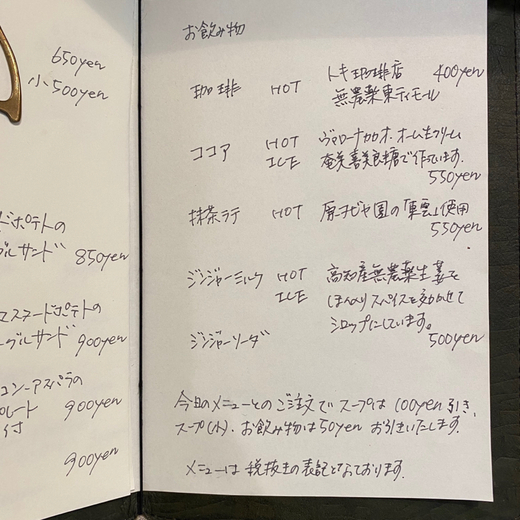 650yen
小500yen
ドポテトの
グルサンド 850yen
スタードポテトの
ーグルサンド 900yen
コン-アスパラの
プレート 900yen
付
900yen
お飲み物
珈琲 HOT トキ珈琲店 400yen
無農薬東ティモール
ココア HOT ヴァローナカカオ、オーム生クリーム
ICE 奄美喜美良糖で作っています。
550yen
抹茶ラテ HOT 「東雲」使用
550yen
ジンジャーミルク HOT 高知産無農薬生姜を
ICE ほんのりスパイスを効かせて
シロップにしています。
ジンジャーソーダ 500yen
今日のメニューとのご注文でスープは100yen引き、
スープ(小)、お飲み物は50yenお引きいたします。
メニューは税抜きの表記となっております。